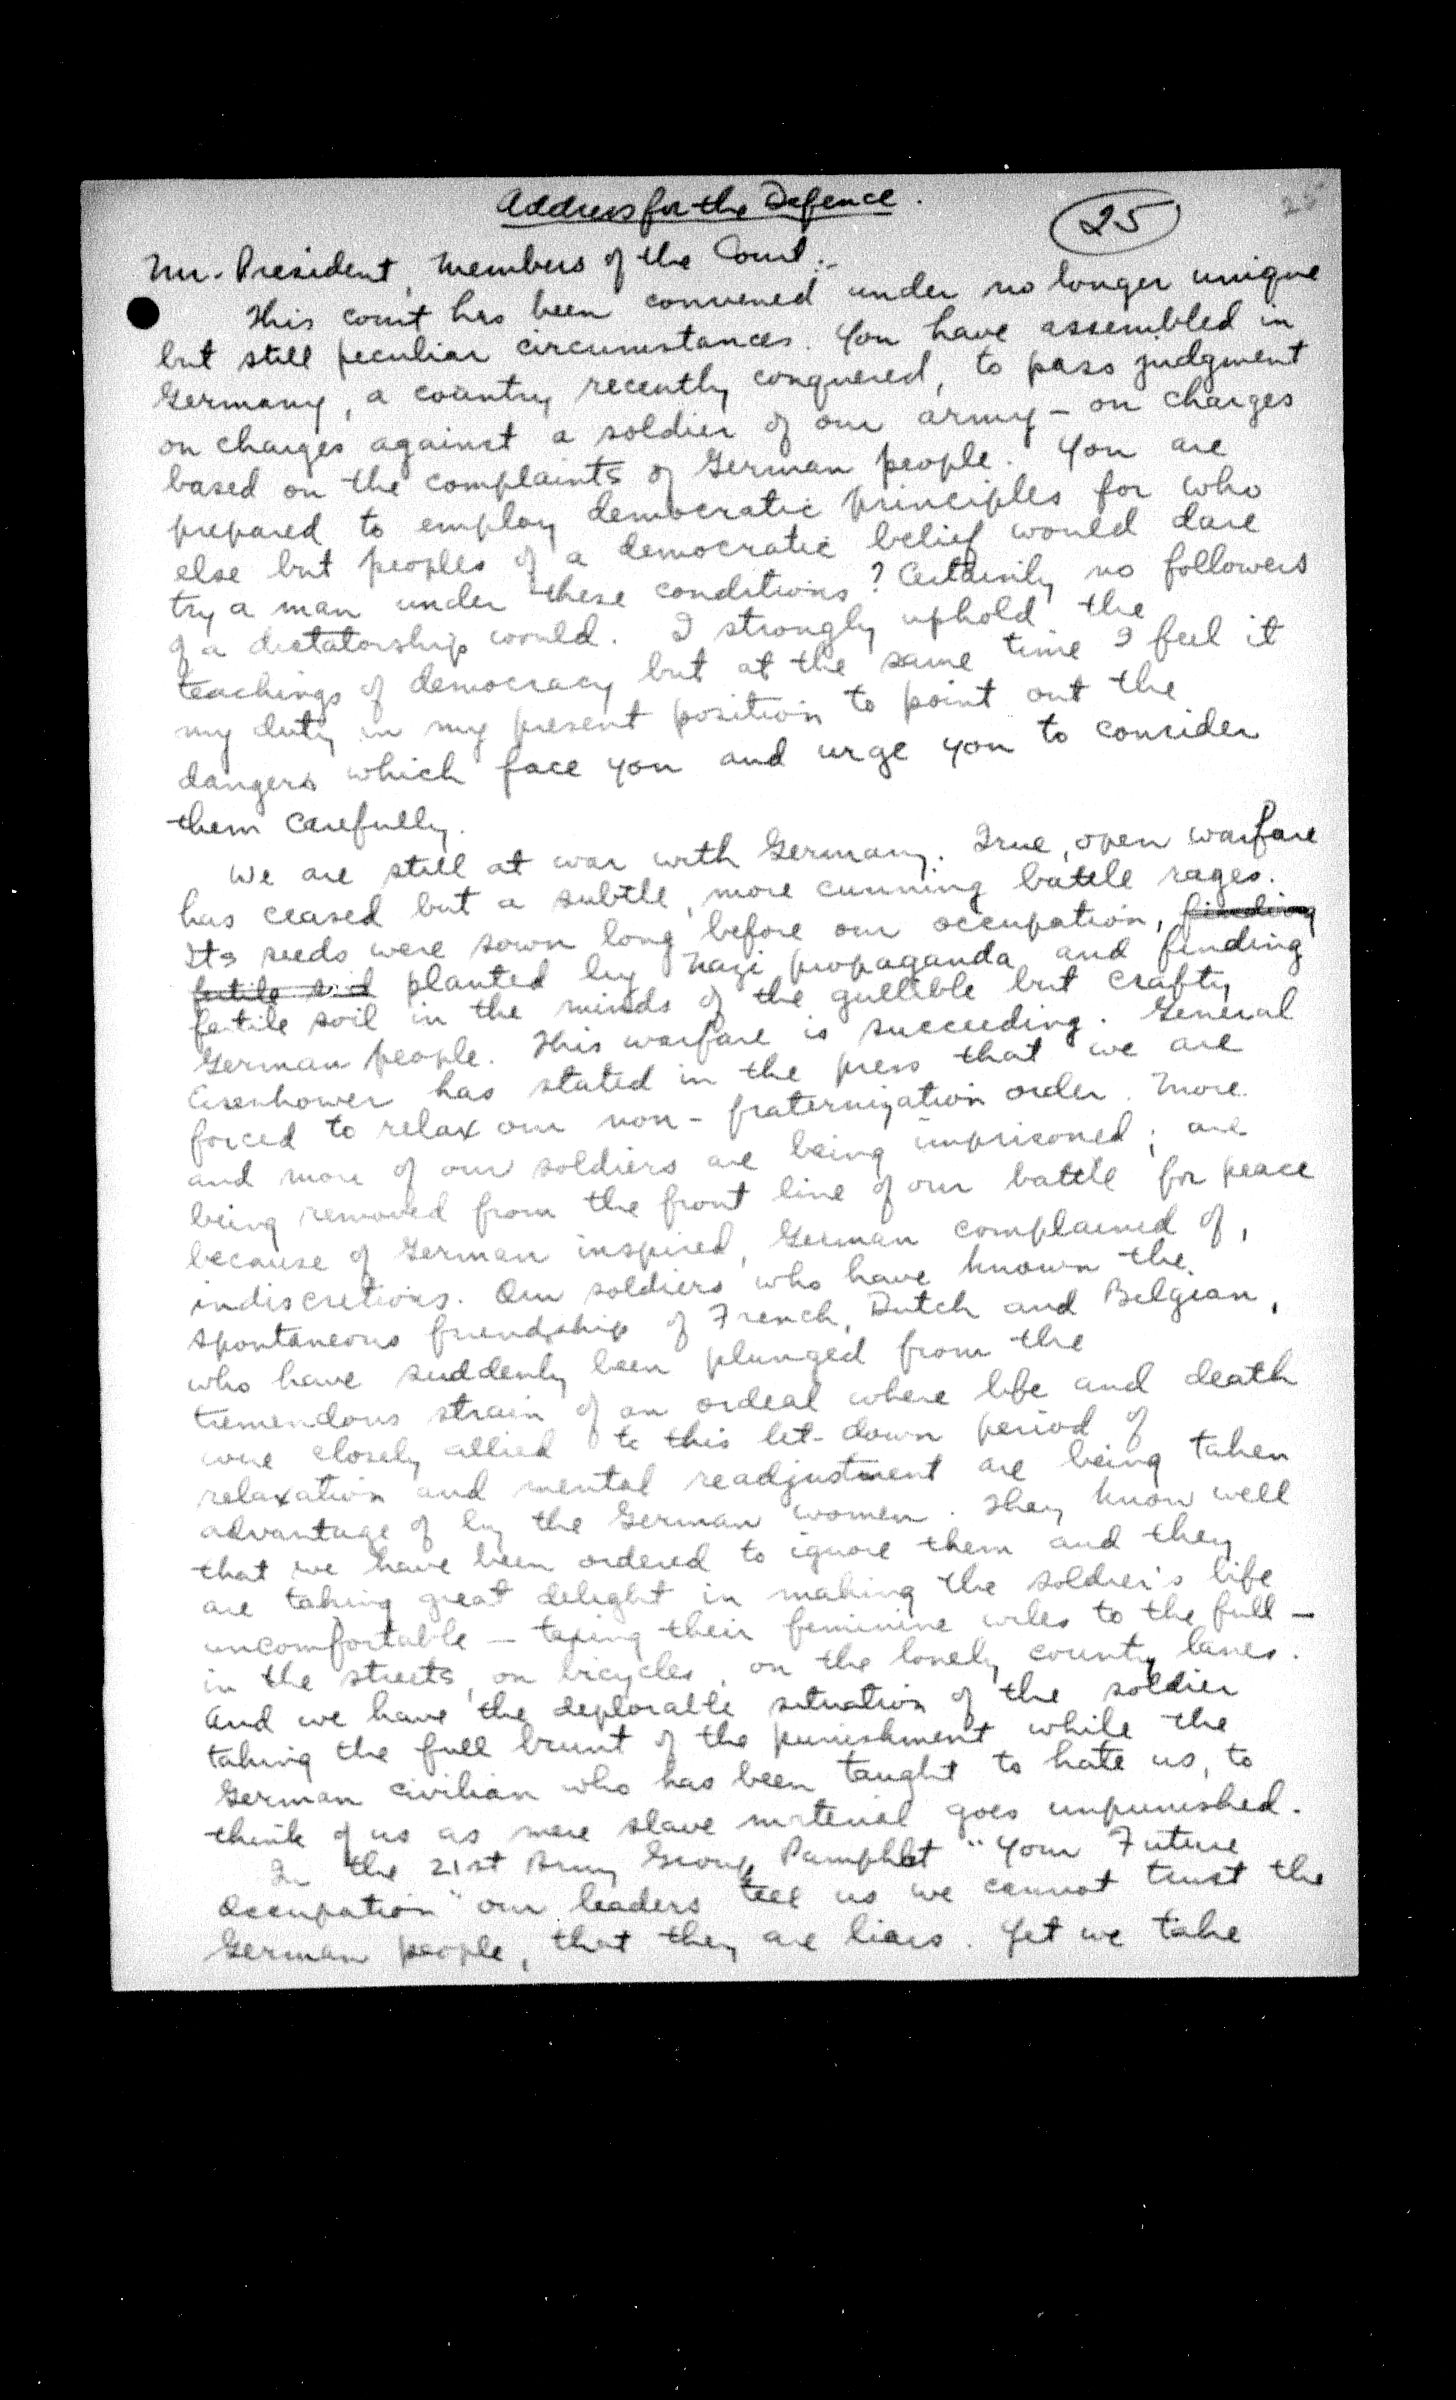 Address for the Defence.
25
25
Mr. President, Members of the Court:-
This court has been convened under no longer unique
but still peculiar circumstances. You have assembled in
Germany, a country recently conquered, to pass judgment
on charges against a soldier of our army - on charges
based on the complaints of German people. You are
prepared to employ democratic principles for who
else but peoples of a democratic belief would dare
try a man under these conditions? Certainly no followers
of a dictatorship would. I strongly uphold the
teachings of democracy but at the same time I feel it
my duty in my present position to point out the
dangers which face you and urge you to consider
them carefully.
We are still at war with Germany. True, open warfare
has ceased but a subtle, more cunning battle rages.
Its seeds were sown long before our occupation, finding
fertile soil planted by Nazi propaganda and finding
fertile soil in the minds of the gullible but crafty
German people. This warfare is succeeding. General
Eisenhower has stated in the press that we are
forced to relax our non-fraternization order. More
and more of our soldiers are being imprisoned; are
being removed from the front line of our battle for peace
because of German inspired, German complained of,
indiscretions. Our soldiers who have known the
spontaneous friendship of French, Dutch and Belgian,
who have suddenly been plunged from the
tremendous strain of an ordeal where life and death
were closely allied to this let-down period of
relaxation and mental readjustment are being taken
advantage of by the German women. They know well
that we have been ordered to ignore them and they
are taking great delight in making the soldier's life
uncomfortable - their feminine wiles to the full -
in the streets, on bicycles, on the lonely county lanes.
And we have the deplorable situation of the soldier
taking the full brunt of the punishment while the
German civilian who has been taught to hate us, to
think of us as mere slave material goes unpunished.
In the 21st Army Group Pamphlet "Your Future
Occupation" our leaders tell us we cannot trust the
German people, that they are liars. Yet we take